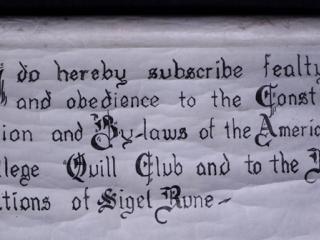 I do hereby subscribe fealty
and obedience to the Const
ion and By-laws of the Americ
llege Quill Club and to the
itions of Sigel Rune